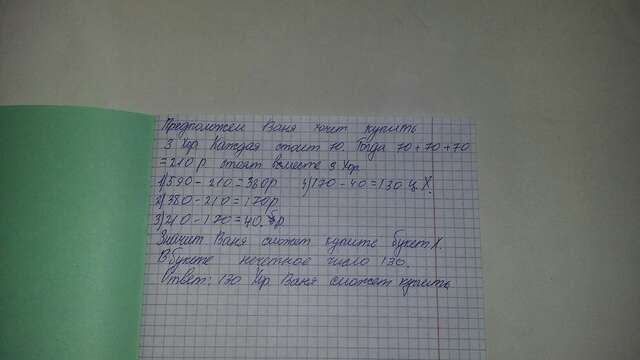 Предположем Ваня хочит купить
3 Хр Каждая стоит 70. Тогда 70+70+70
=210 р стоят вместе 3 Хр
1) 590-210=380р 4) 170-40=130 ц. Х.
2) 380-210=170р
3) 210-170=40. р
Значит Ваня сможет купить букет Х
В букете нечетное число 130.
Ответ: 130 Хр Ваня сможет купить